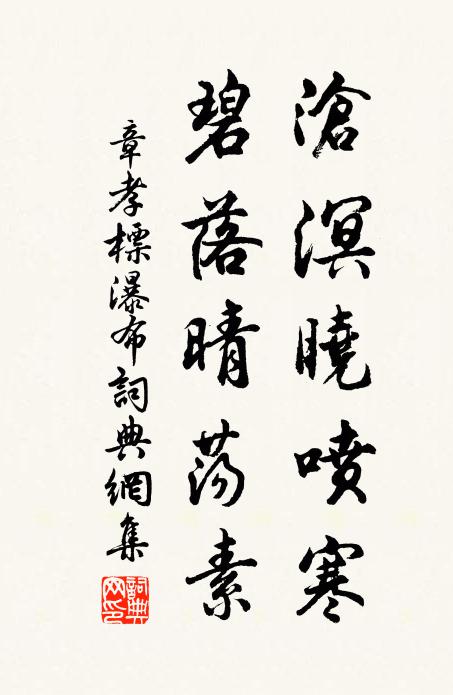 滄溟曉噴寒
碧落晴蕩素
章孝標瀑布詞典網集
詞典网印